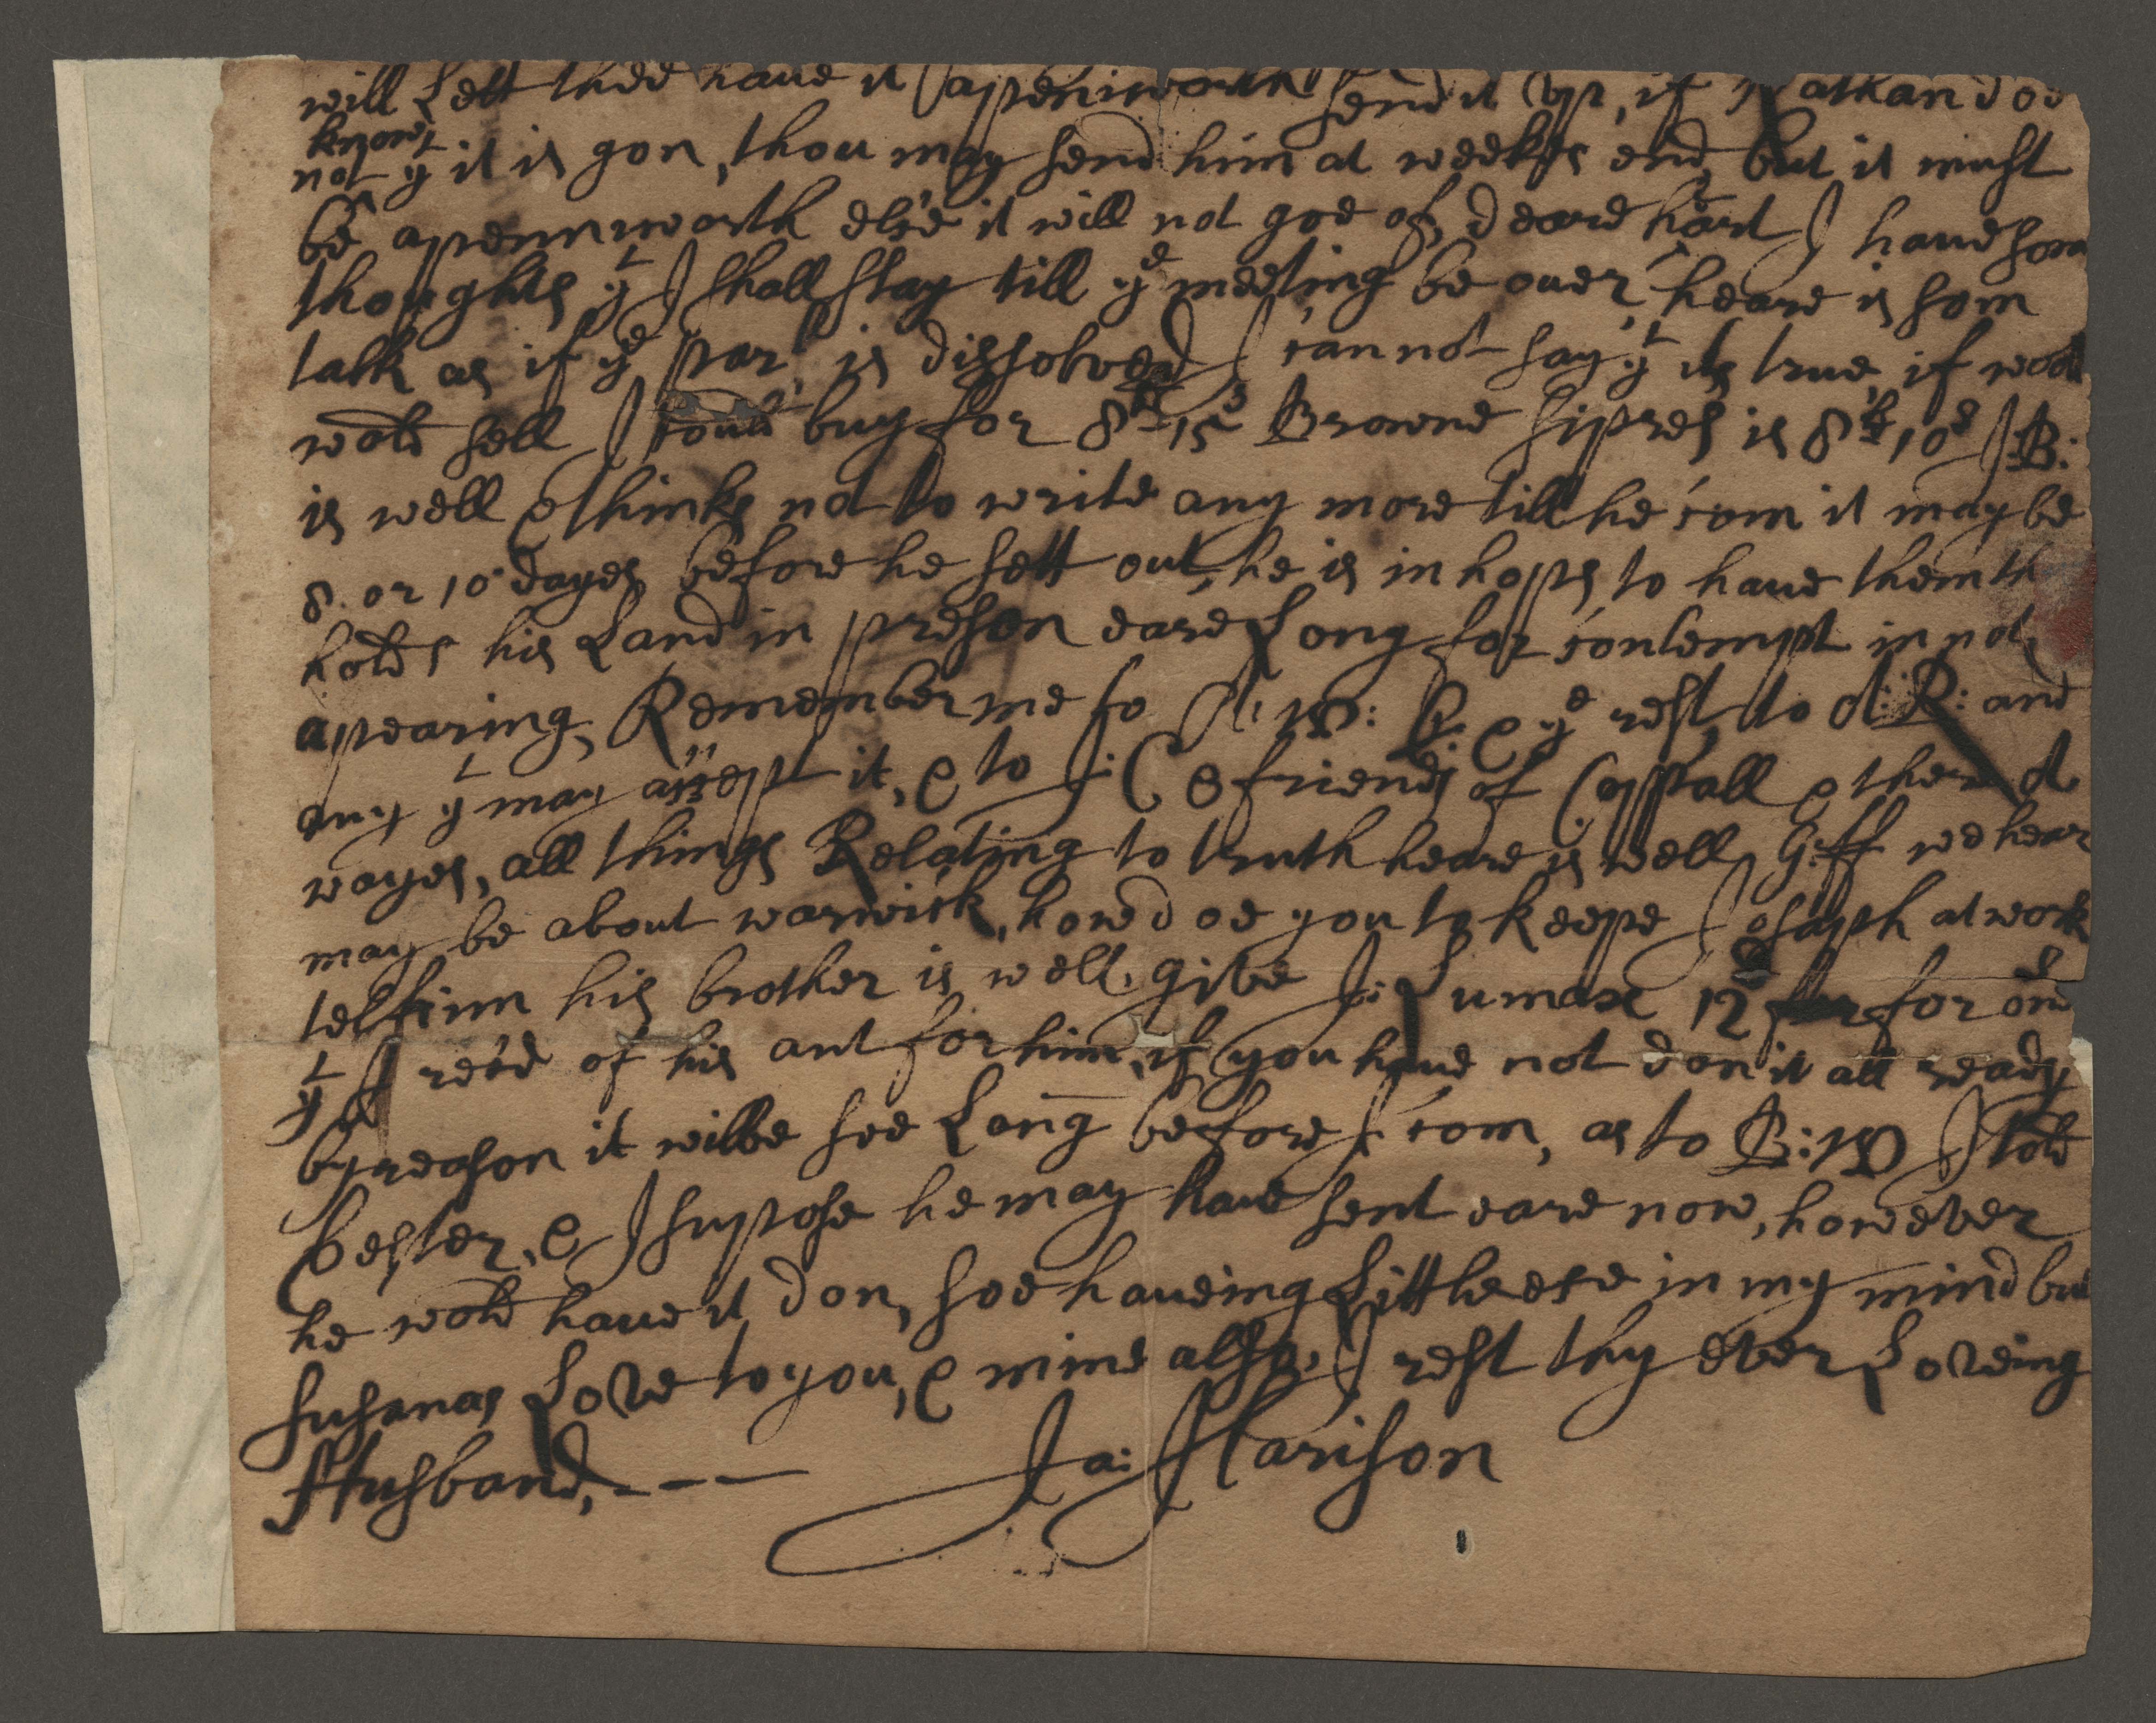 will Lett thee haue it a peniworth send it vp, if Nathan doe
know
not yt it is gon, thou may send him at weekes end, but it must
be a pennworth else it will not goe of, deare hart I haue som
thoughts yt I shall stay till ye meeting be ouer, heare is som
talk as if ye parl is dissolved I cannot say yt its true, if wod
wold sell I could buy for 8li 15s Browne sipres is 8li 10s J:B:
is well & thinks not to write any more till he com it may be
8. or 10 dayes before he sett out, he is in hopes to haue them th
holds his Land in preson eare Long for contempt in not
apearing, Remember me to & ye rest, to R: and
any yt may accept it, & to J:C & friends of Coppall &
wayes, all things Relating to truth heare is well, G:ff we hear
may be about warwick, how doe you to keepe Joseph at work
tell him his brother is well, give J: Lumax 12s for one
yt I rec'd of his ant for him, if you haue not don it all ready
by reason it wilbe soe Long before I com, as to B:W I told
Cester, & I supose he may haue sent eare now, however
he wold haue it don, soe haueing Little else in my mind but
susanas Love to you, & mine also, I rest thy ever Loveing
Husband, - - - Ja: Harison